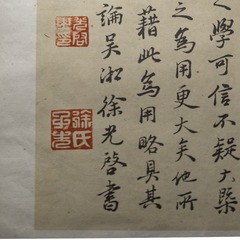 學可信不疑大槩
之為用更大矣他所
藉此為用略具其
論吳淞徐光啓書
徐氏